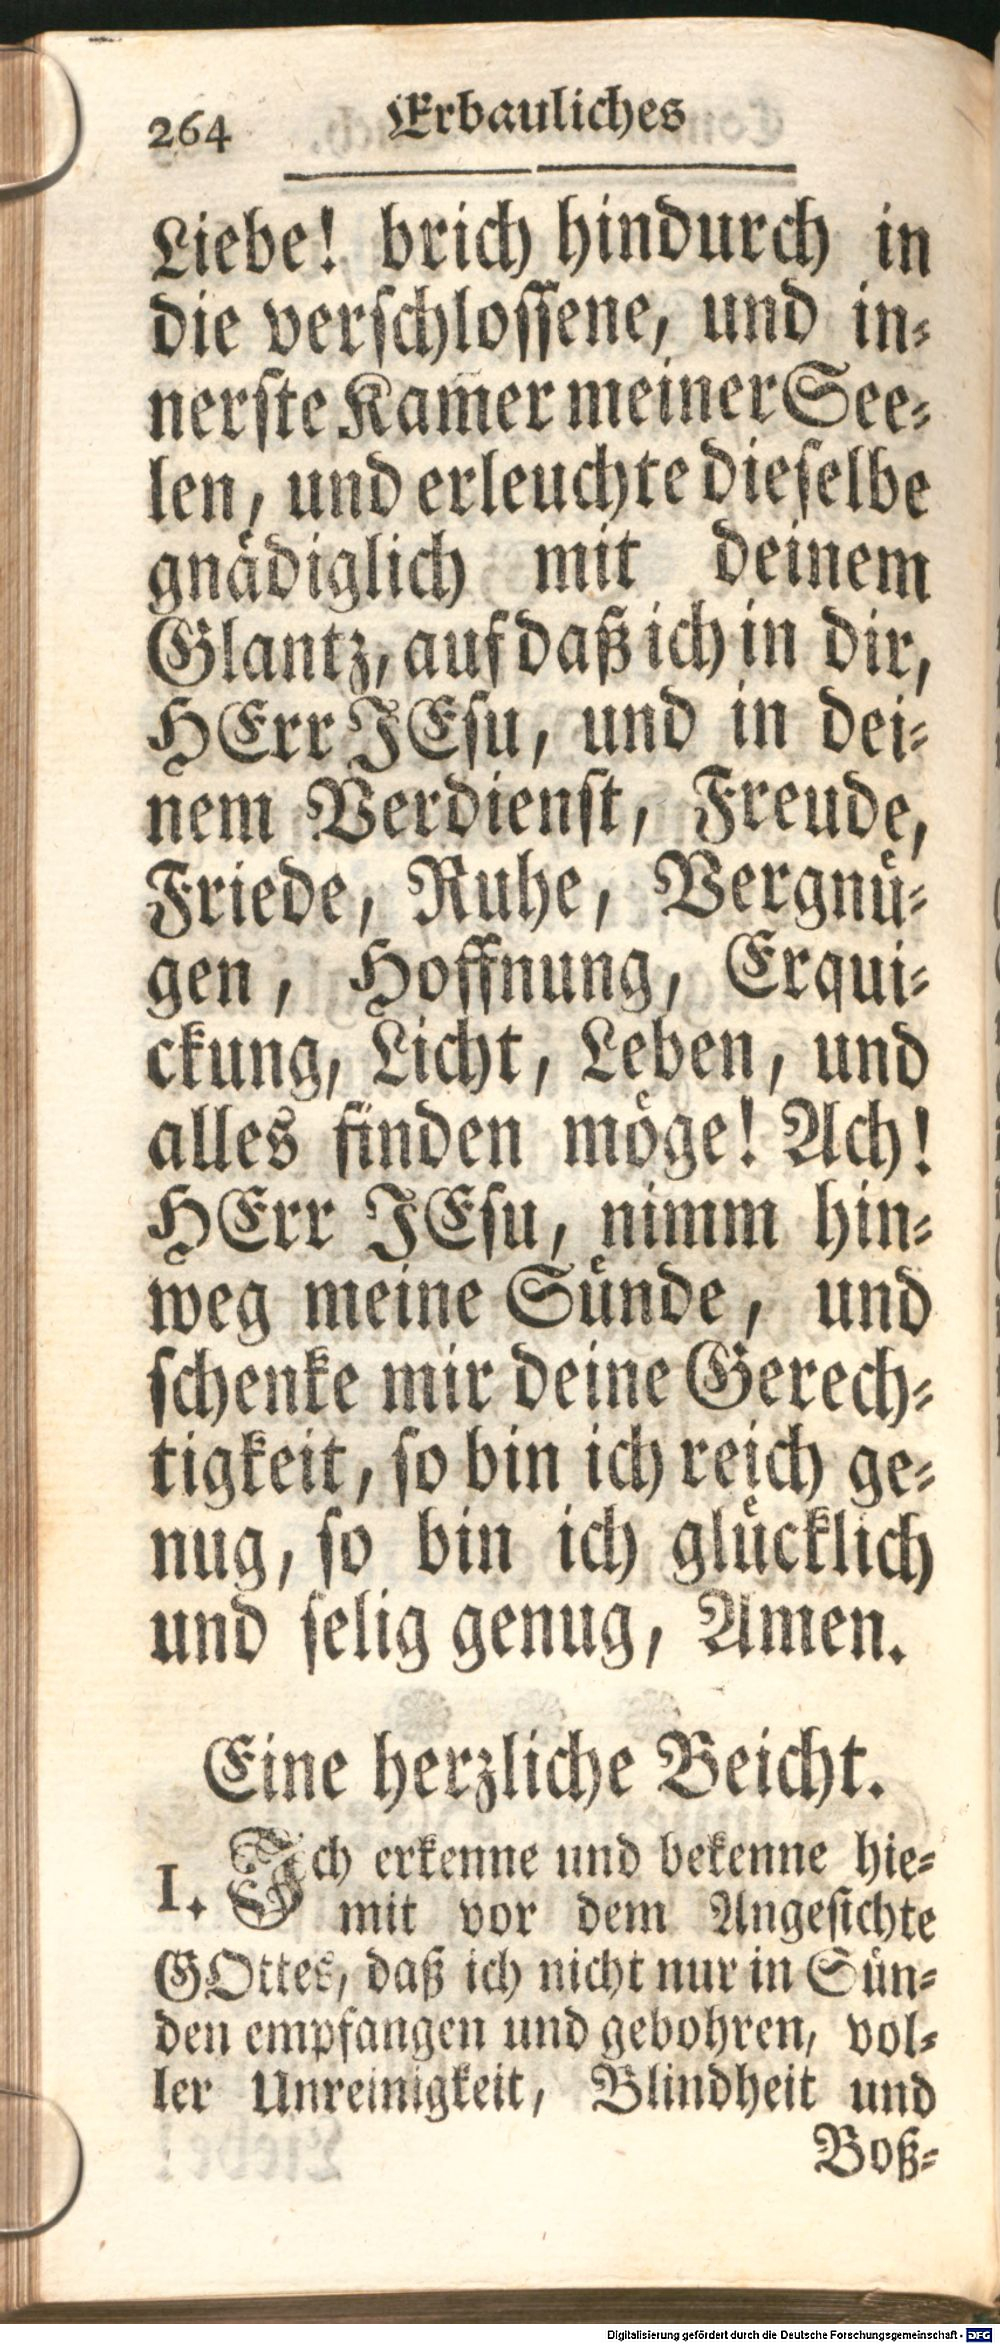 264 Erbauliches
Liebe! brich hindurch in
die verſchloſſene, und in⸗
nerſte Kam̃er meiner See⸗
len, und erleuchte dieſelbe
gnaͤdiglich mit deinem
Glantz, auf daß ich in dir,
HErr JEſu, und in dei⸗
nem Verdienſt, Freude,
Friede, Ruhe, Vergnuͤ⸗
gen, Hoffnung, Erqui⸗
ckung, Licht, Leben, und
alles finden moͤge! Ach!
HErr JEſu, nimm hin⸗
weg meine Suͤnde, und
ſchenke mir deine Gerech⸗
tigkeit, ſo bin ich reich ge⸗
nug, ſo bin ich gluͤcklich
und ſelig genug, Amen.
Eine herzliche Beicht.
1. Ich erkenne und bekenne hie⸗
mit vor dem Angeſichte
GOttes, daß ich nicht nur in Sün⸗
den empfangen und gebohren, vol⸗
ler Unreinigkeit, Blindheit und
Boß⸗
Digitalisierung gefördert durch die Deutsche Forschungsgemeinschaft - DFG